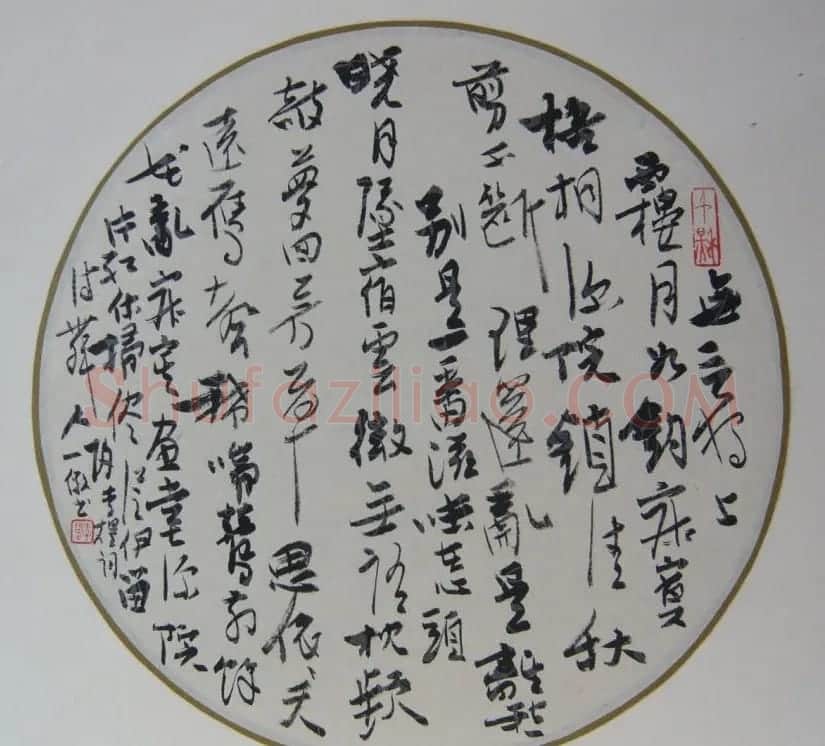 無言獨上
西樓月如鈎寂寞
梧桐深院鎖清秋
剪不斷 理還亂是離愁
別是一番滋味在心頭
曉月墜宿雲微無語枕頻
敧夢回芳草思依依天
遠雁聲稀啼鶯散餘
花亂寂寞畫堂深院
片紅休掃盡從伊留
待舞人
李煜詞
書
ShufaZiliao.COM